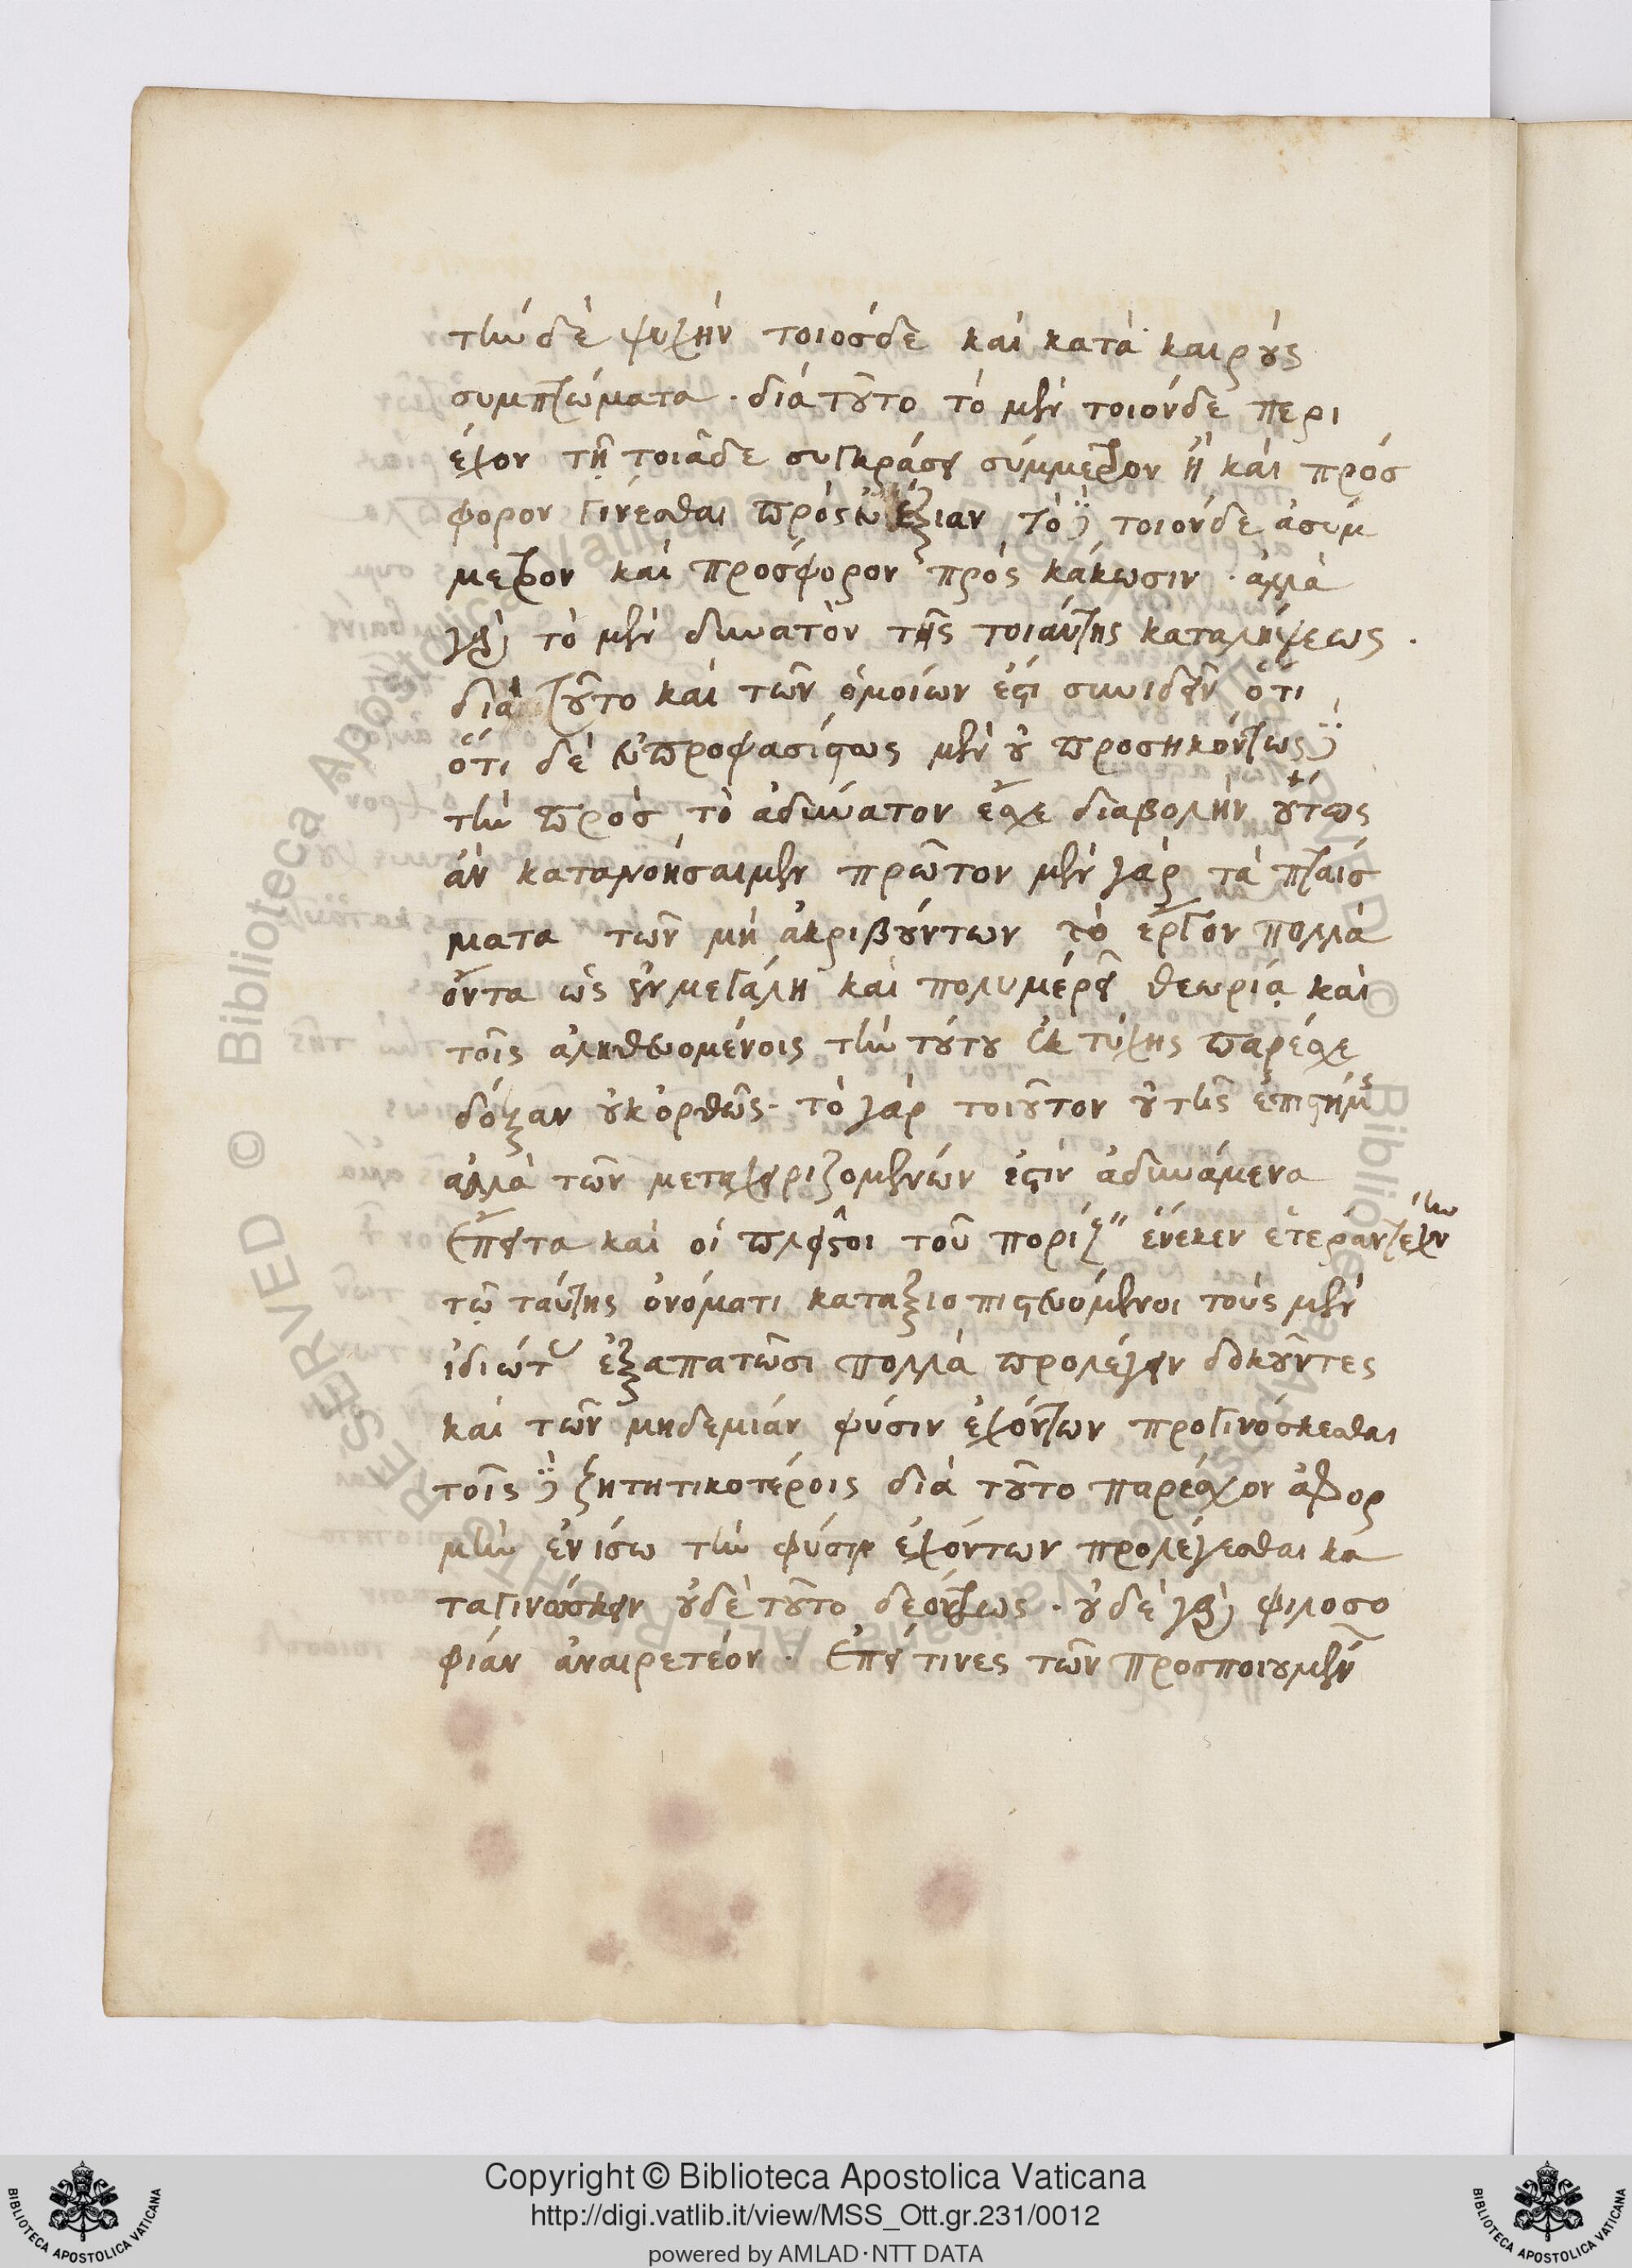 τὴν δὲ ψυχὴν τοιόσδε καὶ κατὰ καιροὺς
συμπτώματα · διὰ τοῦτο τὸ μὲν τοιόνδε περι
έχον τῇ τοιᾷδε συγκράσει σύμμετρον ἢ καὶ πρόσ
φορον γίνεσθαι πρὸς εὐεξίαν τὸ δὲ τοιόνδε ἀσύμ
μετρον καὶ πρόσφορον πρὸς κάκωσιν · ἀλλὰ
γὰρ τὸ μὲν δυνατὸν τῆς τοιαύτης καταλήψεως ·
διὰ τούτο καὶ τῶν ὁμοίων ἔστι συνιδεῖν ὅτι
ὅτι δὲ εὐπροφασίστως μὲν οὐ προσηκόντως δὲ
τὴν πρὸς τὸ ἀδύνατον ἔσχε διαβολὴν οὕτως
ἂν κατανοήσαιμεν πρῶτον μὲν γὰρ τὰ πταίσ
ματα τῶν μὴ ἀκριβούντων τὸ ἔργον πολλὰ
ὄντα ὡς ἐν μεγάλη καὶ πολυμερεῖ θεωρίᾳ καὶ
τοῖς ἀληθευομένοις τὴν τούτου ἐκ τύχης παρέσχε
δόξαν οὐκ ὀρθῶς · τὸ γὰρ τοιοῦτον οὐ τῆς ἐπιστήμης
ἀλλὰ τῶν μεταχειριζομένων ἐστὶν ἀδυνάμενα
ἔπειτα καὶ οἱ πλεῖστοι τοῦ πορίζειν ἕνεκεν ἑτέραν τέχνην
τῷ ταύτης ὀνόματι καταξιοπιστευόμενοι τοὺς μὲν
ἰδιώτας ἐξαπατῶσι πολλὰ προλέγειν δοκοῦντες
καὶ τῶν μηδεμίαν φύσιν ἐχόντων προγινόσκεσθαι
τοῖς δὲ ζητητικοτέροις διὰ τοῦτο παρέσχον ἀφορ
μὴν ἐν ἴσω τὴν φύσιν ἐχόντων προλέγεσθαι κα
ταγινώσκειν οὐδὲ τοῦτο δεόντως · οὐδὲ γὰρ φιλοσο
φίαν ἀναιρετέον · ἐπεί τινες τῶν προσποιουμένων
Copyright © Biblioteca Apostolica Vaticana
http://digi.vatlib.it/view/MSS_Ott.gr.231/0012
powered by AMLAD·NTT DATA
BIBLIOTECA APOSTOLICA VATICANA
BIBLIOTECA APOSTOLICA VATICANA